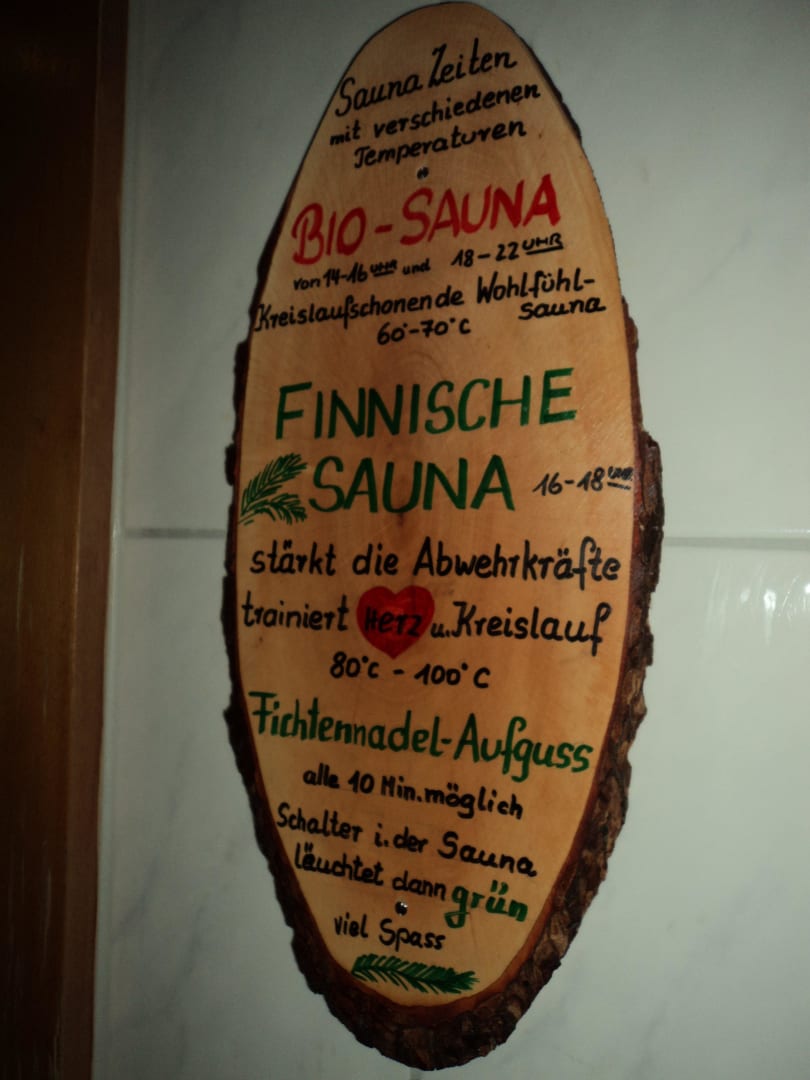 Sauna Zeiten
mit verschiedenen
Temperaturen
BIO-SAUNA
von 14-16 UHR und 18-22 UHR
Kreislaufschonende Wohlfühl-
Sauna
60°-70°C
FINNISCHE
SAUNA 16-18 UHR
stärkt die Abwehrkräfte
trainiert Herz u. Kreislauf
80°C - 100°C
Fichtennadel-Aufguss
alle 10 Min. möglich
Schalter i. der Sauna
läuchtet dann grün
viel Spass